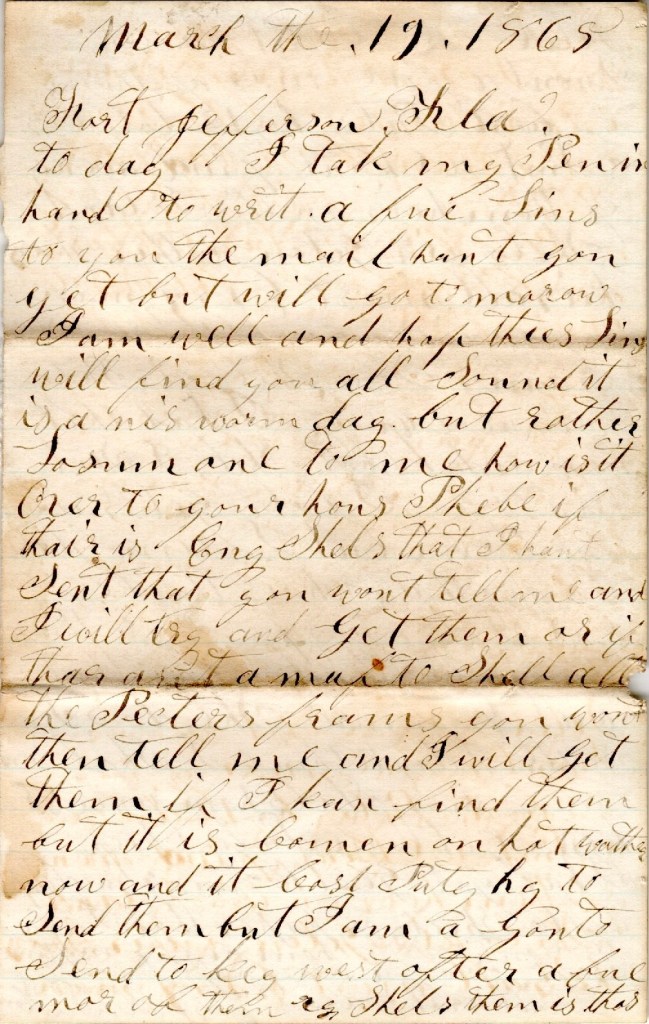 March the . 19 . 1865
Fort Jefferson, Fla.
to day I tak my Pen in
hand to writ . a fue Lins
to you the mail hant gon
yet but will go to morow
I am well and hop thees Lins
will find you all Sound it
is a nis worm day. but rather
Lonsum one to me how is it
Over to your hous Phebe if
thair is Eny Shels that I hant
Sent that you wont tell me and
I will try and Get them or if
thar ant a nuf to Shell all
the Pecters frams you wont
then tell me and I will Get
them if I kan find them
but it is Comen on hot wather
now and it Cost Puty hy to
Send them but I am a Gon to
Send to key west after a fue
mor of them Shels them is thos